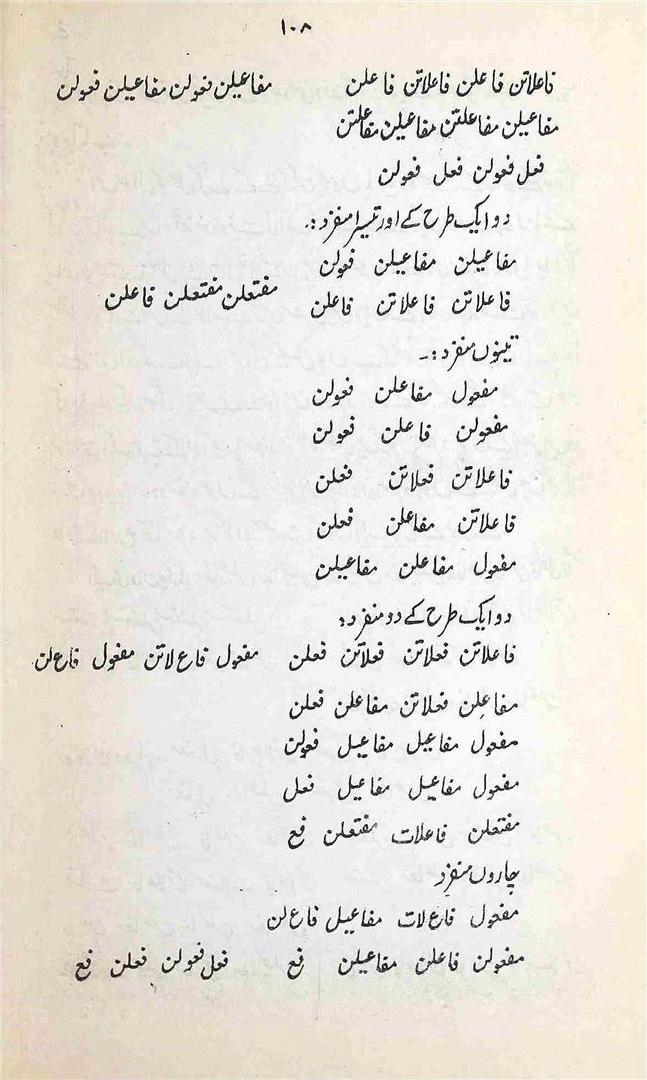 ۱۰۸
فاعلاتن فاعلن فاعلاتن فاعلن مفاعیلن فعولن مفاعیلن فعولن
مفاعیلن مفاعلتن مفاعیلن مفاعلتن
فعل فعولن فعل فعولن
دو ایک طرح کے اور تیسرا منفرد :۔
مفاعیلن مفاعیلن فعولن
فاعلاتن فاعلاتن فاعلن مفتعلن مفتعلن فاعلن
تینوں منفرد :۔
مفعول مفاعلن فعولن
مفعولن فاعلن فعولن
فاعلاتن فعلاتن فعلن
فاعلاتن مفاعلن فعلن
مفعول مفاعلن مفاعیلن
دو ایک طرح کے دو منفرد :
فاعلاتن فعلاتن فعلاتن فعلن مفعول فاع لاتن مفعول فاع لن
مفاعلن فعلاتن مفاعلن فعلن
مفعول مفاعیل مفاعیل فعولن
مفعول مفاعیل مفاعیل فعل
مفتعلن فاعلات مفتعلن فع
چاروں منفرد
مفعول فاع لات مفاعیل فاع لن
مفعولن فاعلن مفاعیلن فع فعل فعولن فعلن فع